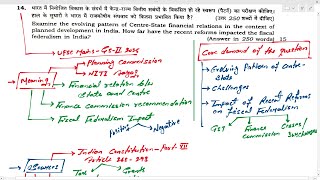 14. भारत में नियोजित विकास के संदर्भ में केंद्र-राज्य वित्तीय संबंधों के विकसित हो रहे स्वरूप (पैटर्न) का परीक्षण कीजिए।
हाल के सुधारों ने भारत में राजकोषीय संघवाद को कितना प्रभावित किया है? (उत्तर 250 शब्दों में दीजिए)
Examine the evolving pattern of Centre-State financial relations in the context of
planned development in India. How far have the recent reforms impacted the fiscal
federalism in India? (Answer in 250 words) 15
UPSC Mains - GS-II 2025
Planning Commission
NITI Aayog
Meaning
Financial relation b/w
State and centre
Finance Commission recommendation
Fiscal Federalism Impact
Positive
Negative
Core demand of the question
Evolving pattern of centre-
State
Challenges
Impact of Recent Reforms
on fiscal Federalism
GST
Finance
Commission
Cesses/
Surcharges
Sources
Indian Constitution - Part XII
Article 268-293
Tax
Grants